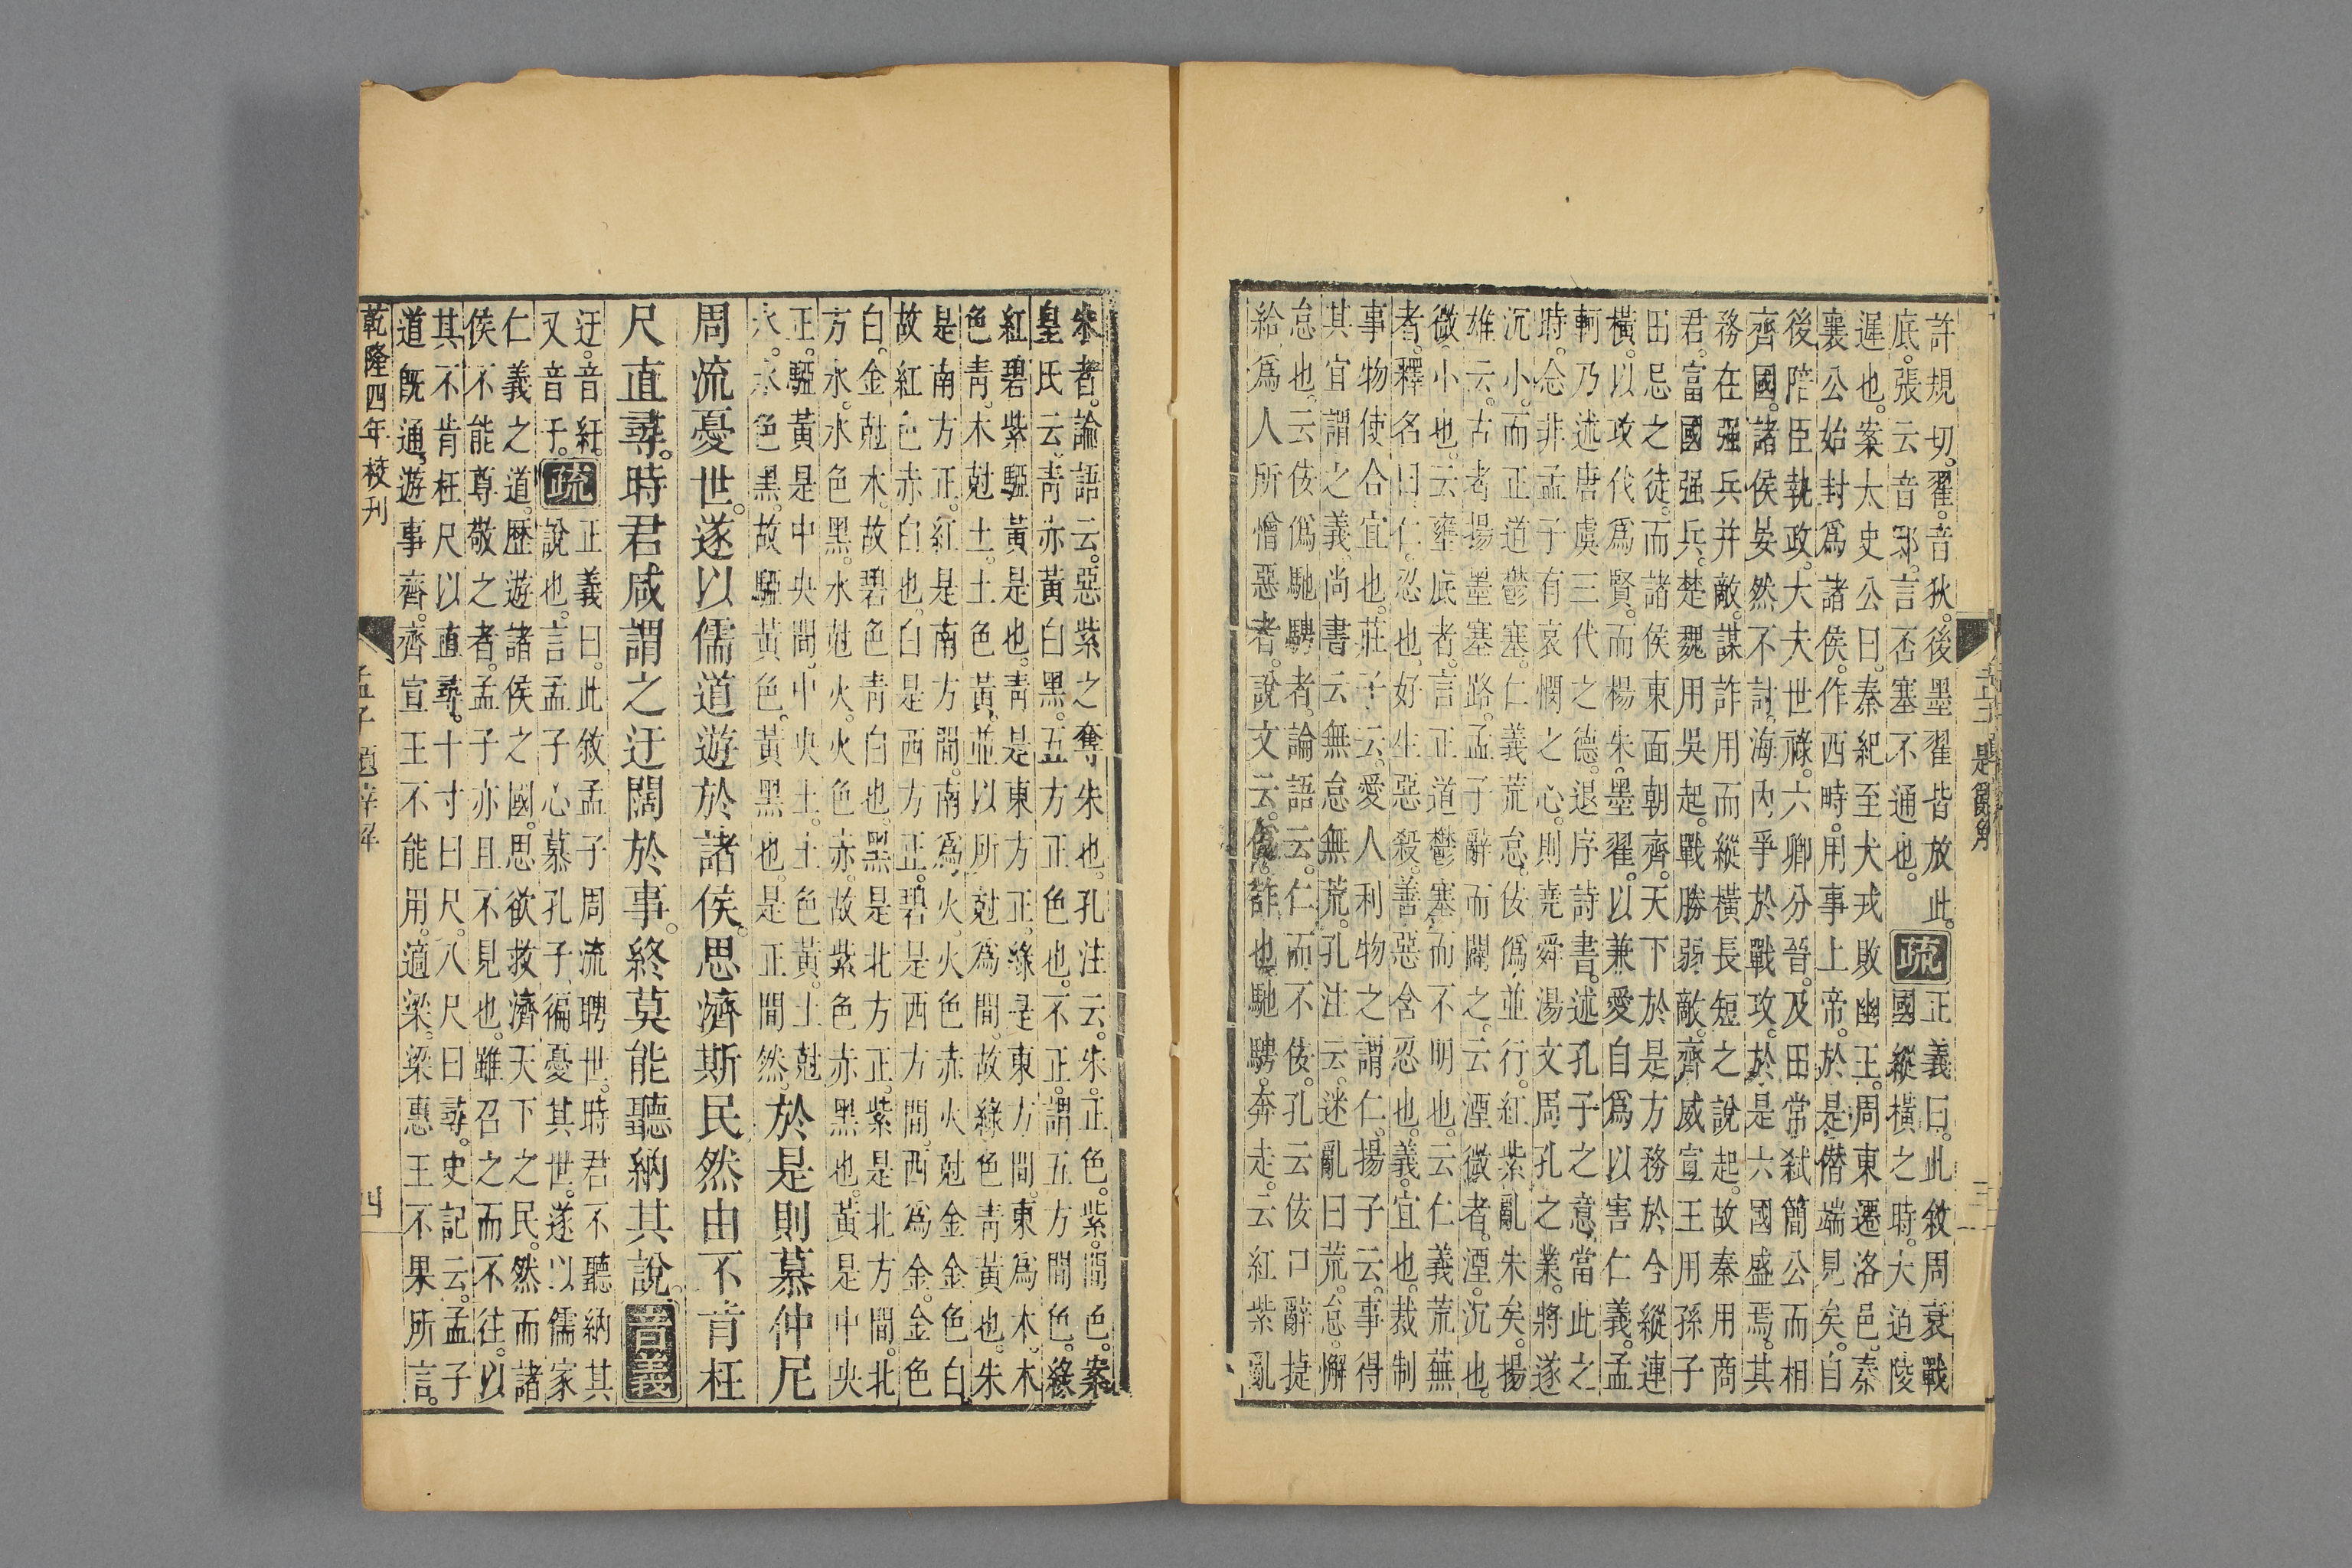 許規切。翟。音狄。後墨翟皆放此。疏正義曰。此敘周衰戰
底。張云音邸。言否塞不通也。疏國縱橫之時。大迫陵
遲也。案太史公曰。秦紀至犬戎敗幽王。周東遷洛邑。秦
襄公始封爲諸侯。作西畤。用事上帝。於是僭端見矣。自
後陪臣執政。大夫世祿。六卿分晉。及田常弑簡公而相
齊國。諸侯晏然不討。海內爭於戰攻。於是六國盛焉。其
務在强兵并敵。謀詐用而縱橫長短之說起。故秦用商
君。富國强兵。楚魏用吳起。戰勝弱敵。齊威宣王用孫子
田忌之徒。而諸侯東面朝齊。天下於是方務於今縱連
橫。以攻代爲賢。而楊朱墨翟。以兼愛自爲以害仁義。孟
軻乃述唐虞三代之德。退序詩書。述孔子之意。當此之
時。念非孟子有哀憫之心。則堯舜湯文周孔之業。將遂
沉小。而正道鬱塞。仁義荒怠。佞僞並行。紅紫亂朱矣。揚
雄云。古者揚墨塞路。孟子辭而闢之。云湮微者。湮。沉也。
微。小也。云壅底者。言正道鬱塞而不明也。云仁義荒蕪
者。釋名曰。仁。忍也。好生惡殺。善惡含忍也。義。宜也。裁制
事物使合宜也。莊子云。愛人利物之謂仁。揚子云。事得
其宜謂之義。尚書云無怠無荒。孔注云。迷亂曰荒。怠。懈
怠也。云佞僞馳騁者。論語云。仁而不佞。孔云佞口辭捷
給爲人所憎惡者。說文云。僞。詐也。馳騁。奔走。云紅紫亂
朱者。論語云。惡紫之奪朱也。孔注云。朱。正色。紫。間色。案
皇氏云。靑赤黃白黑。五方正色也。不正。謂五方間色。綠
紅碧紫騮黃是也。靑是東方正。綠是東方間。東爲木。木
色靑。木尅土。土色黃。並以所尅爲間。故綠色靑黃也。朱
是南方正。紅是南方間。南爲火。火色赤。火尅金。金色白。
故紅色赤白也。白是西方正。碧是西方間。西爲金。金色
白。金尅木。故碧色靑白也。黑是北方正。紫是北方間。北
方水。水色黑。水尅火。火色赤。故紫色赤黑也。黃是中央
正。騮黃是中央間。中央土。土色黃。土尅
水。水色黑。故騮黃色黃黑也。是正間然。於是則慕仲尼
周流憂世。遂以儒道遊於諸侯。思濟斯民然由不肯枉
尺直尋。時君咸謂之迂闊於事。終莫能聽納其說。音義
迂。音紆。疏正義曰。此敘孟子周流聘世。時君不聽納其
又音于。疏說也。言孟子心慕孔子。徧憂其世。遂以儒家
仁義之道。歷遊諸侯之國。思欲救濟天下之民。然而諸
侯不能尊敬之者。孟子亦且不見也。雖召之而不往。以
其不肯枉尺以直尋。十寸曰尺。八尺曰尋。史記云。孟子
道旣通。遊事齊。齊宣王不能用。適梁。梁惠王不果所言。
乾隆四年校刊 孟子題辭解 四